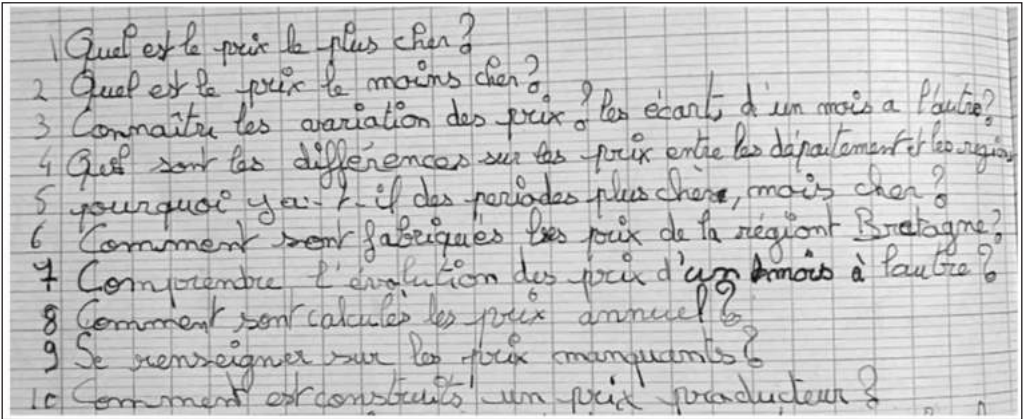 1 Quel est le prix le plus cher?
2 Quel est le prix le moins cher?
3 Connaître les avariation des prix? les écarts d'un mois a l'autre?
4 Quel sont les différences sur les prix entre les département et les région
5 pourquoi y a-t-il des periodes plus chère, mois cher?
6 Comment sont fabriqués les prix de la régiont Bretagne?
7 Comprendre l'évolution des prix d'un mois à l'autre?
8 Comment sont calculés les prix annuel?
9 Se renseigner sur les prix manquants?
10 Comment est construits un prix producteur?